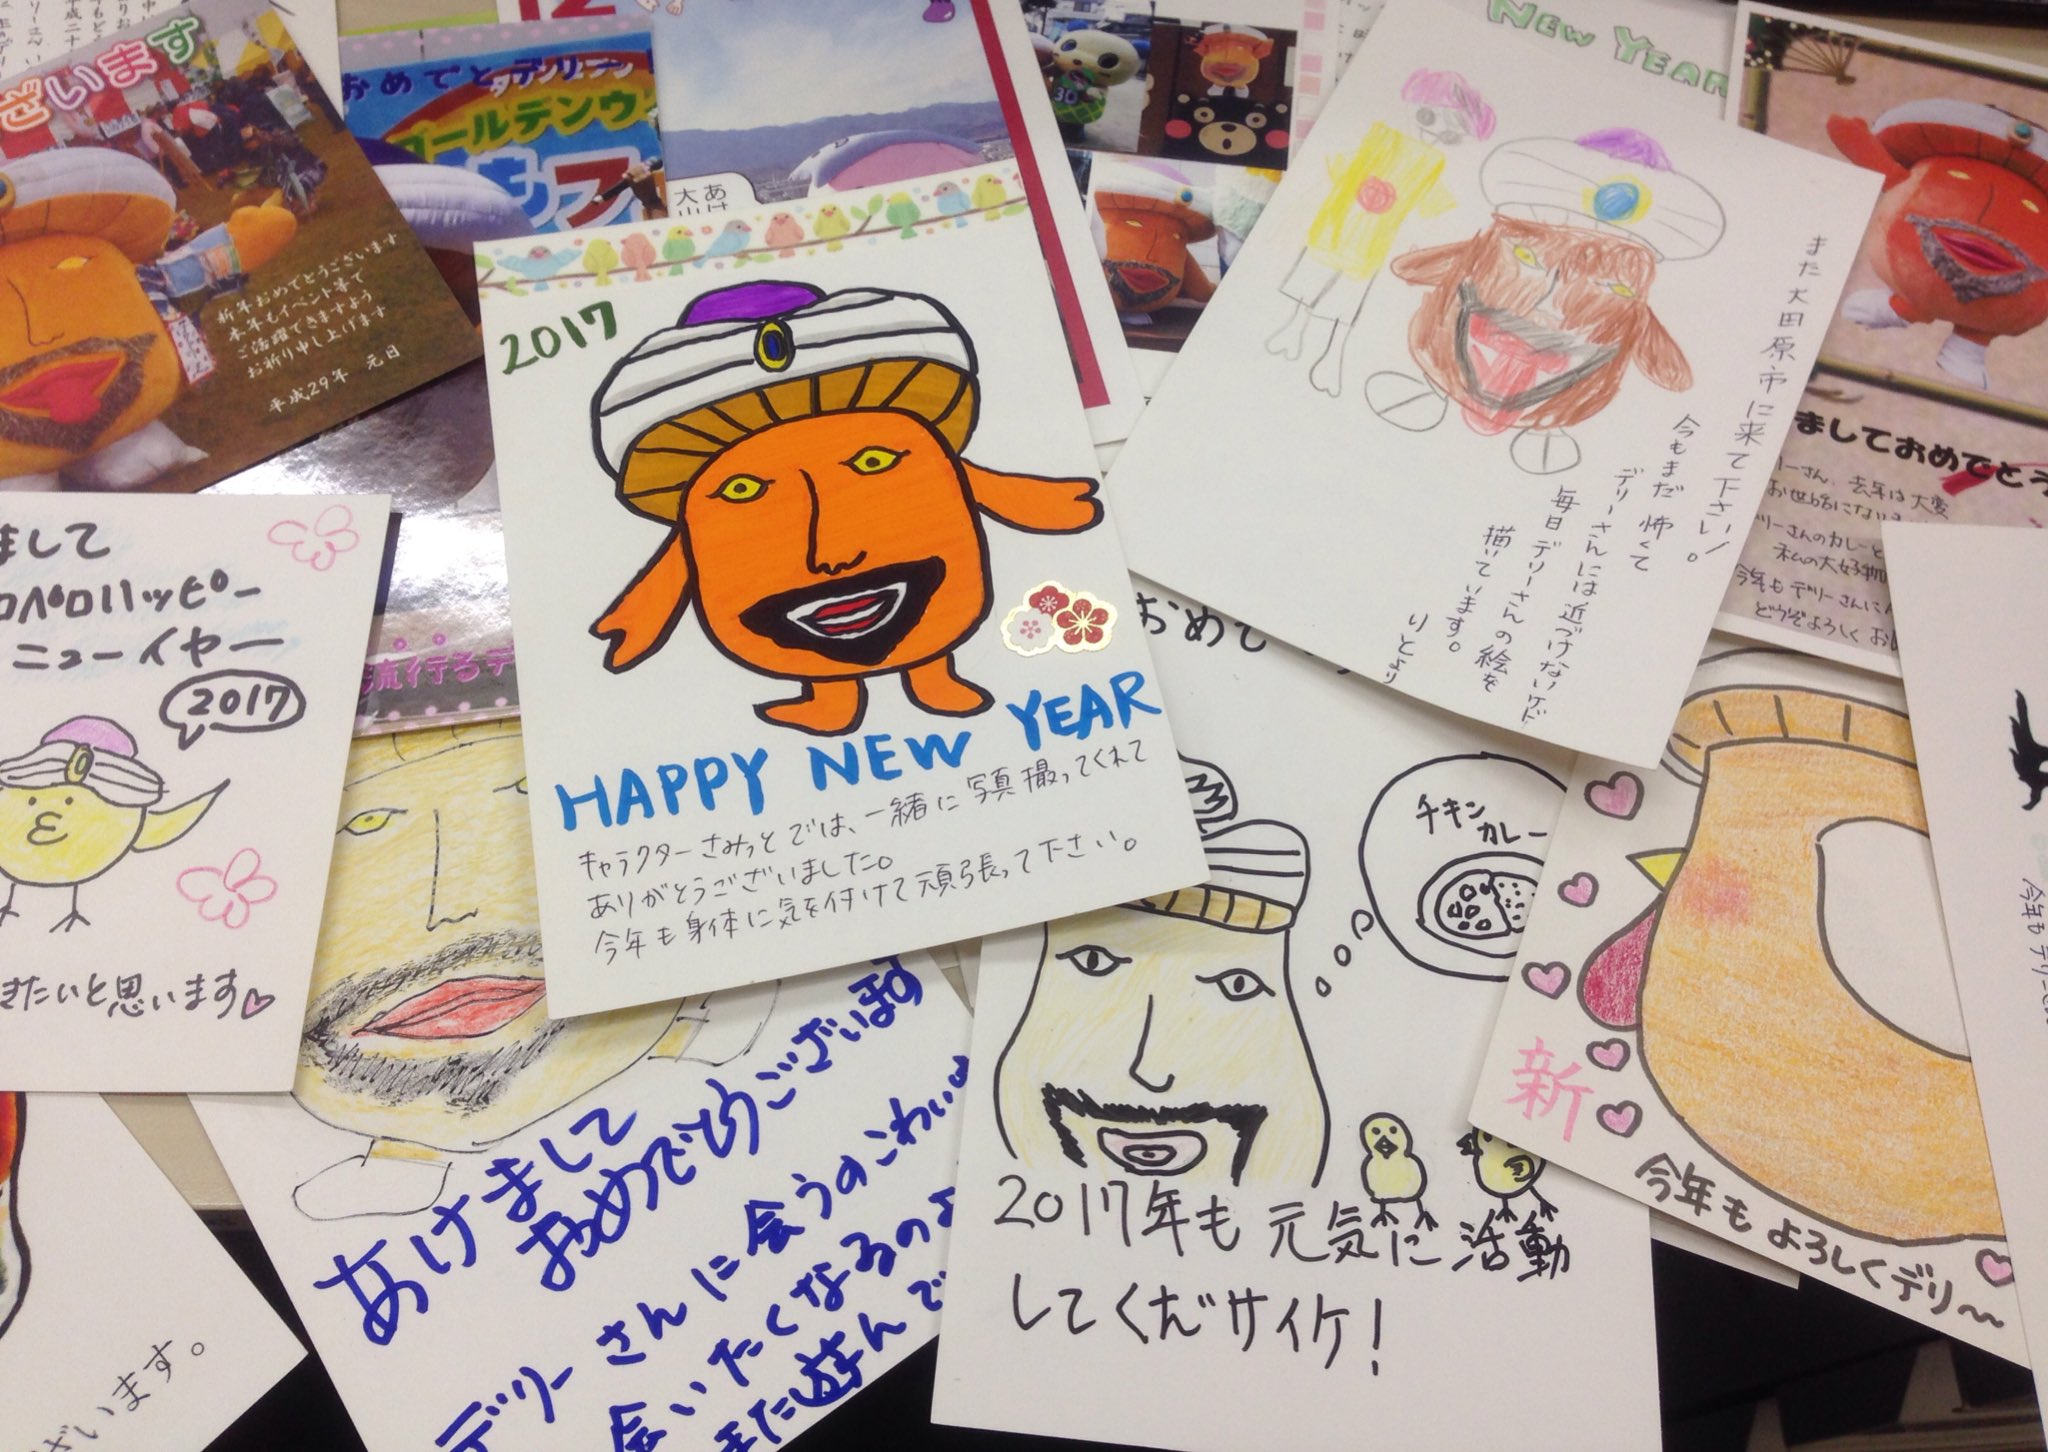 ざいます
新年おめでとうございます
本年もイベント等で
ご活躍できますよう、
お祈り申し上げます
平成29年 元日
おめでとデンリデン
ゴールデンウ
あけ
大山
30
NEW YEAR
また大田原市に来て下さい!
今もまだ怖くて
デリーさんには近づけないけど
毎日デリーさんの絵を
描いています。
りとより
ましておめでとう
リーさん、去年は大変
お世話になりま
リーさんのカレーと
私の大好物
今年もデリーさんに
どうぞよろしくお
2017
HAPPY NEW YEAR
キャラクターさみっとでは、一緒に写真撮ってくれて
ありがとうございました。
今年も身体に気を付けて頑張って下さい。
まして
ロペロハッピー
ニューイヤー
2017
きたいと思います
流行るデ
おめで
チキン
カレー
2017年も元気に活動
してくださサイケ!
あけまして
おめでとうございます
デリーさんに会うのこわいω
会いたくなるのよ
また遊んで
新
今年もよろしくデリ〜
今年もデリー
ざいます。